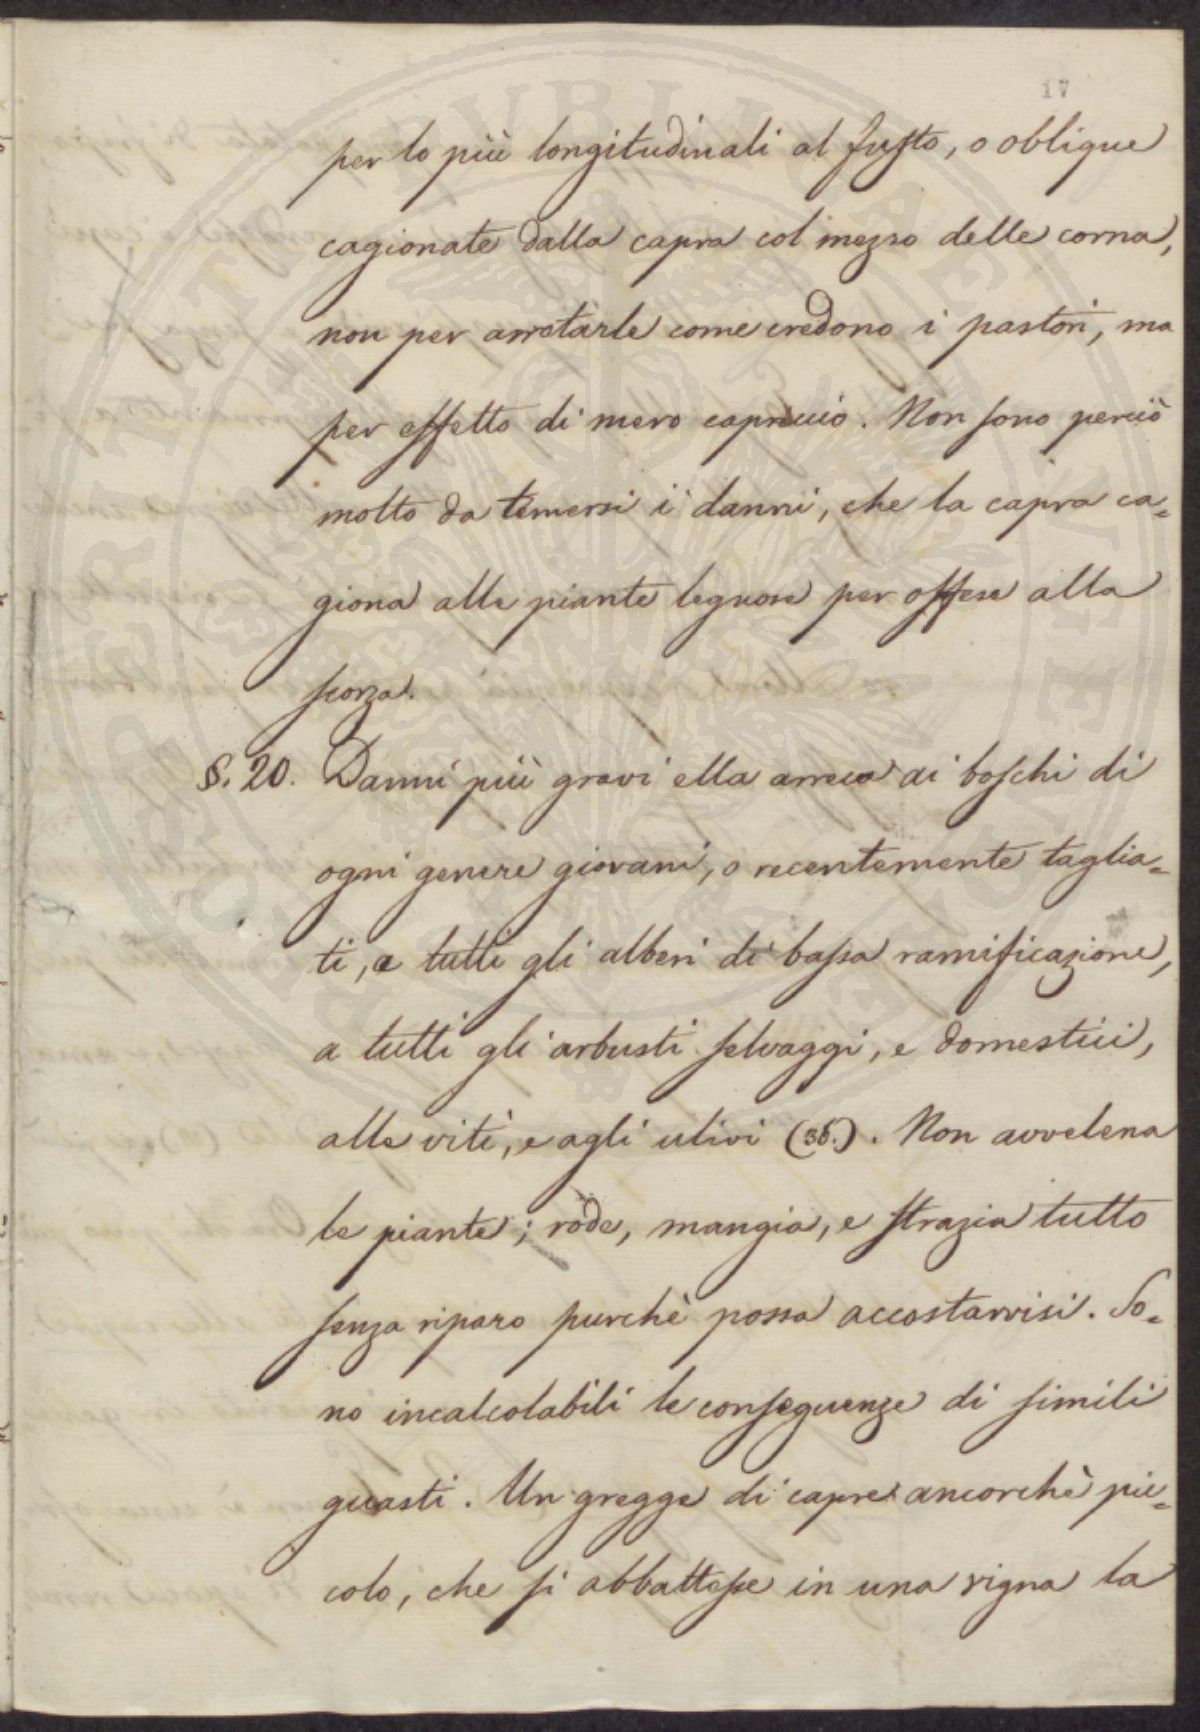 17
per lo più longitudinali al fusto, o oblique
cagionate dalla capra col mezzo delle corna,
non per arrotarle come credono i pastori, ma
per effetto di mero capriccio. Non sono perciò
molto da temersi i danni, che la capra ca=
giona alle piante legnose per offese alla
scorza.
§. 20. Danni più gravi ella arreca ai boschi di
ogni genere giovani, o recentemente taglia=
ti, a tutti gli alberi di bassa ramificazione,
a tutti gli arbusti selvaggi, e domestici,
alle viti, e agli ulivi (36.). Non avvelena
le piante; ròde, mangia, e strazia tutto
senza riparo purchè possa accostarvisi. So=
no incalcolabili le conseguenze di simili
guasti. Un gregge di capre ancorchè pic=
colo, che si abbattesse in una vigna la